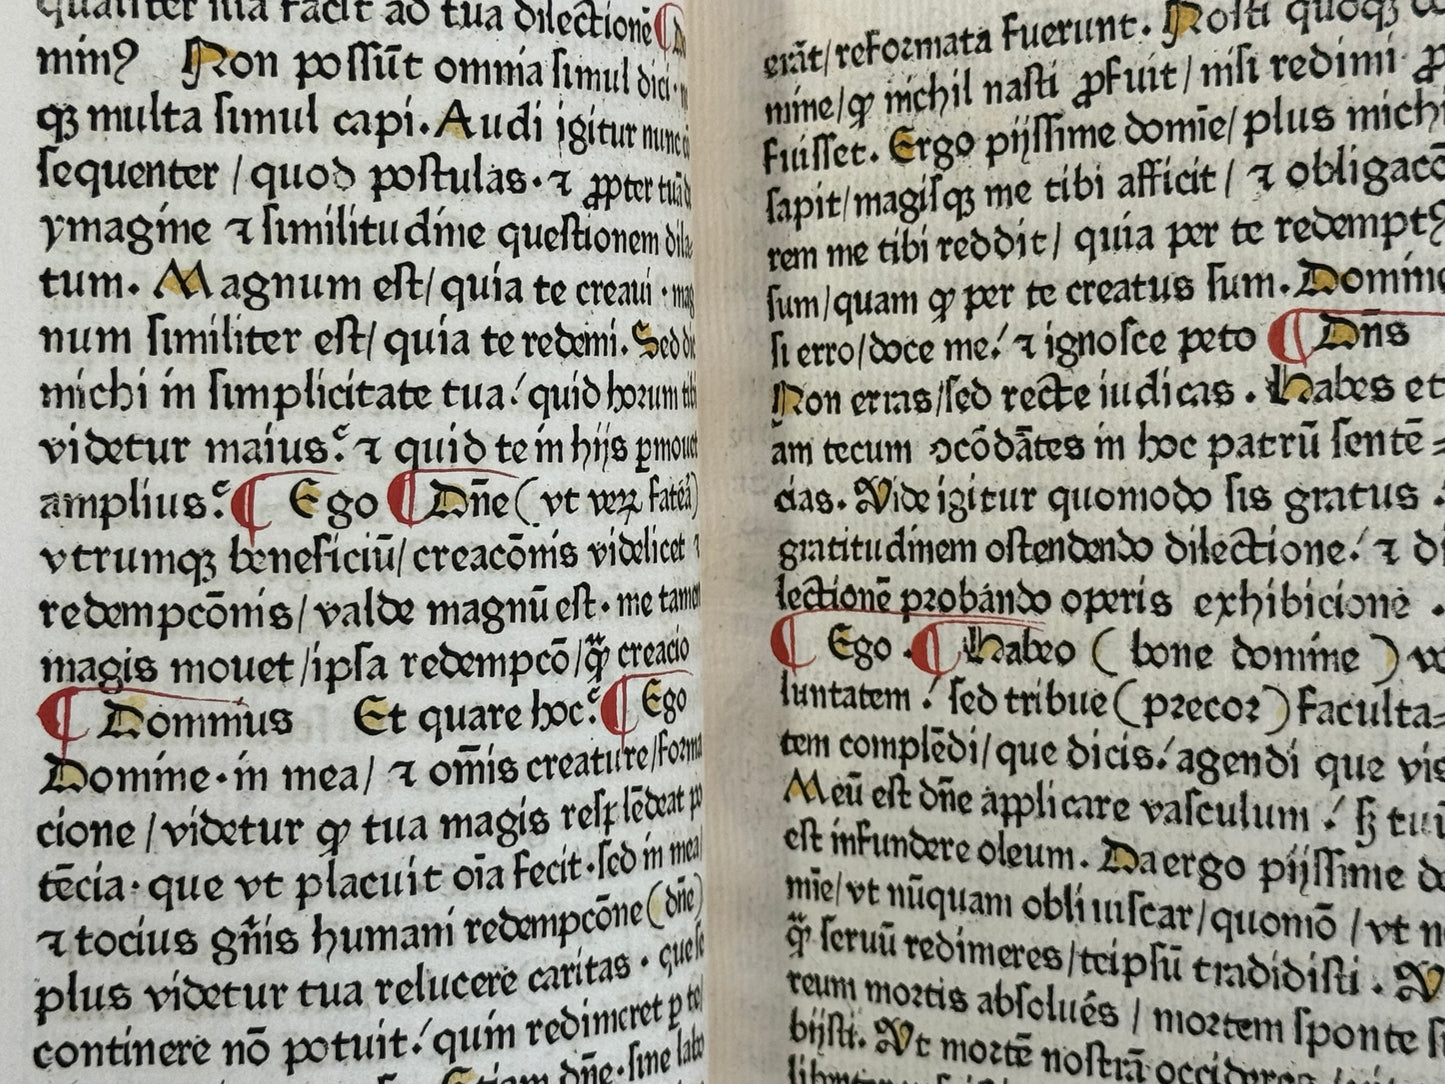 qualiter illa facit ad tua dilectionē ¶ Do
minꝰ Non possūt omnia simul dici·
qꝫ multa simul capi. Audi igitur nunc
sequenter / quod postulas· ⁊ ꝓpter tuā
ymagine ⁊ similitudine questionem dila
tum. Magnum est/ quia te creaui · mag
num similiter est/ quia te redemi. Sed dic
michi in simplicitate tua: quid horum tibi
videtur maius? ⁊ quid te in hijs ꝑmouet
amplius? ¶ Ego ¶ Dn̄e (vt veꝝ fateā)
vtrumqꝫ beneficiū/ creacōnis videlicet ⁊
redempcōnis/ valde magnū est· me tamen
magis mouet /ipsa redempcō/ qͣꝫ creacio
¶ Dominus Et quare hoc? ¶ Ego
Domine· in mea/ ⁊ om̄is creature/ forma
cione / videtur ꝙ tua magis resplēdeat po
tēcia· que vt placuit oīa fecit· sed in mea/
⁊ tocius gn̄is humani redempcōne (dn̄e)
plus videtur tua relucere caritas · que se
continere nō potuit: quin redimeret ꝑ te
Etiam dn̄e· sine labo
erāt/ reformata fuerunt. Nosti quoqꝫ
mine/ ꝙ nichil nasti ꝓfuit / nisi redimi ꝓ
fuisset. Ergo pijssime domīe/ plus michi
sapit/ magisqꝫ me tibi afficit / ⁊ obligacō
rem me tibi reddit/ quia per te redemptꝰ
sum/ quam ꝙ per te creatus sum. Domine
si erro/ doce me: ⁊ ignosce peto ¶ Dn̄s
Non erras/ sed recte iudicas . Habes et
am tecum ↄcōdātes in hoc patrū sentē =
cias. Vide igitur quomodo sis gratus .
gratitudinem ostendendo dilectione: ⁊ di
lectionē probando operis exhibicione .
¶ Ego . ¶ Habeo ( bone domine ) vo
luntatem : sed tribue (precor) faculta=
tem complēdi/ que dicis: agendi que vis
Meū est dn̄e applicare vasculum : sꝫ tuū
est infundere oleum. Da ergo pijssime do
mīe/ vt nūquam obliuiscar/ quomō / vt
qͣꝫ seruū redimeres/ teipsū tradidisti . V
reum mortis absolues / mortem sponte s
bijsti. Vt mortē nostrā occideres